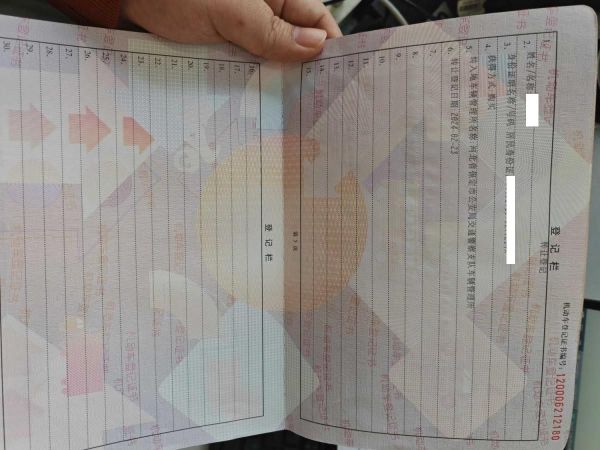 机动车登记证书编号：120006212180
登记栏
转让登记
2. 姓名/名称
3. 身份证明名称/号码 居民身份证
4. 获得方式 购买
5. 转入地车辆管理所名称 河北省保定市公安局交通警察支队车辆管理所
6. 转让登记日期 2024-02-23
7.
8.
9.
10.
11.
12.
13.
14.
15.
第 3 页
登记栏
16.
17.
18.
19.
20.
21.
22.
23.
24.
25.
26.
27.
28.
29.
30.